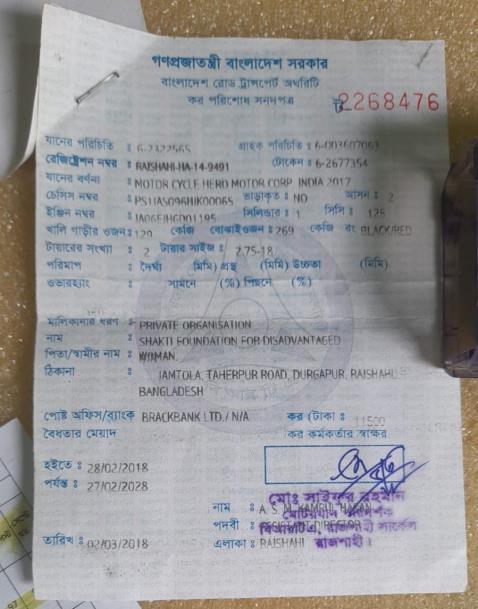 গণপ্রজাতন্ত্রী বাংলাদেশ সরকার
বাংলাদেশ রোড ট্রান্সপোর্ট অথরিটি
কর পরিশোধ সনদপত্র
ট 2268476
যানের পরিচিতি : 6-2322565 গ্রাহক পরিচিতি : 6-003607063
রেজিষ্ট্রেশন নম্বর : RAJSHAHI-HA-14-9491 টোকেন : 6-2677354
যানের বর্ণনা : MOTOR CYCLE HERO MOTOR CORP INDIA 2017
চেসিস নম্বর : ভাড়াকৃত : NO আসন : 2
ইঞ্জিন নম্বর : সিলিন্ডার : 1 সিসি : 125
খালি গাড়ীর ওজন : 120 কেজি বোঝাইওজন : 269 কেজি রং BLACK/RED
টায়ারের সংখ্যা : 2 টায়ার সাইজ : 2.75-18
পরিমাপ : দৈর্ঘ্য (মিমি) প্রস্থ (মিমি) উচ্চতা (মিমি)
ওভারহ্যাং : সামনে (%) পিছনে (%)
মালিকানার ধরণ : PRIVATE ORGANISATION
নাম : SHAKTI FOUNDATION FOR DISADVANTAGED
পিতা/স্বামীর নাম : WOMAN.
ঠিকানা : JAMTOLA, TAHERPUR ROAD, DURGAPUR, RAJSHAHI
BANGLADESH
পোষ্ট অফিস/ব্যাংক BRACKBANK LTD / N/A কর (টাকা : 11500
বৈধতার মেয়াদ কর কর্মকর্তার স্বাক্ষর
হইতে : 28/02/2018
পর্যন্ত : 27/02/2028
মোঃ সাইফুর রহমান
নাম : A. S. M. KAMRUL HASAN
মোটরযান পরিদর্শক
পদবী : ASSISTANT DIRECTOR
বিআরটিএ, রাজশাহী সার্কেল
তারিখ : 02/03/2018 এলাকা : RAJSHAHI রাজশাহী।